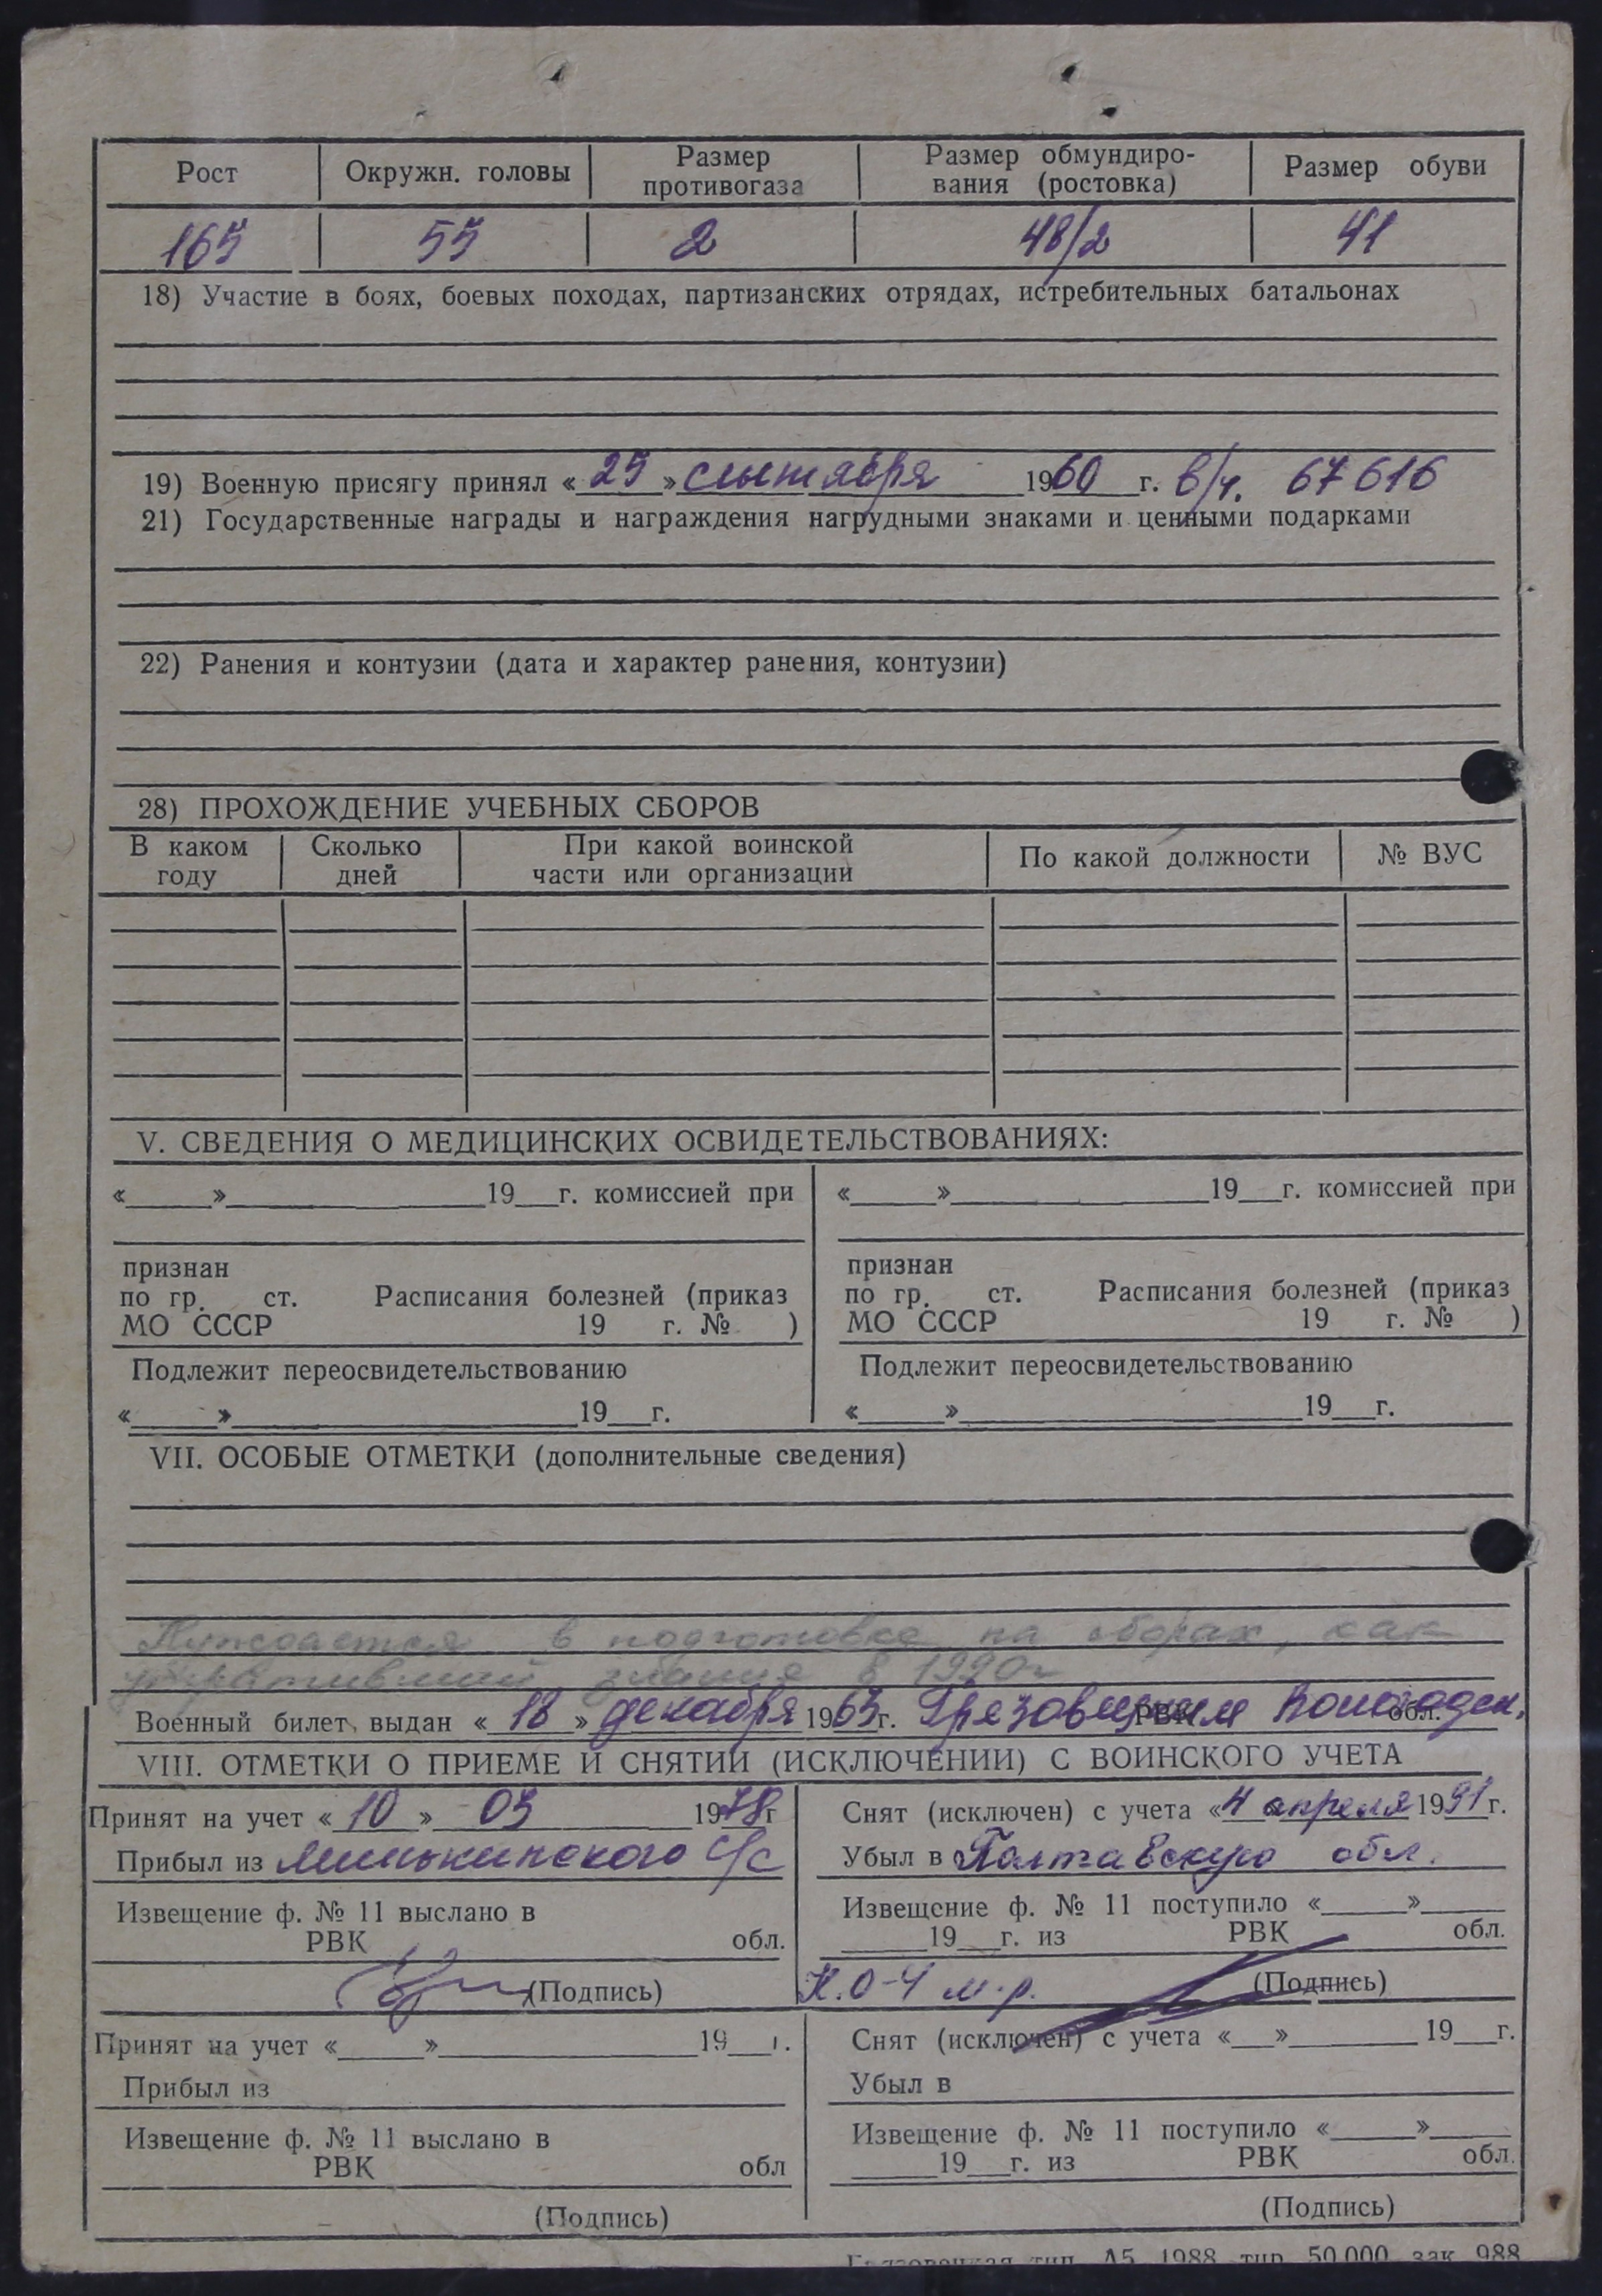 Рост Окружн. головы Размер противогаза Размер обмундиро- вания (ростовка) Размер обуви
165 55 2 48/2 41
18) Участие в боях, боевых походах, партизанских отрядах, истребительных батальонах
19) Военную присягу принял «25» сентября 1960 г. в/ч. 67616
21) Государственные награды и награждения нагрудными знаками и ценными подарками
22) Ранения и контузии (дата и характер ранения, контузии)
28) ПРОХОЖДЕНИЕ УЧЕБНЫХ СБОРОВ
В каком году Сколько дней При какой воинской части или организации По какой должности № ВУС
V. СВЕДЕНИЯ О МЕДИЦИНСКИХ ОСВИДЕТЕЛЬСТВОВАНИЯХ:
«___»______19__г. комиссией при «___»______19__г. комиссией при
признан признан
по гр. ст. Расписания болезней (приказ по гр. ст. Расписания болезней (приказ
МО СССР 19 г. № ) МО СССР 19 г. № )
Подлежит переосвидетельствованию Подлежит переосвидетельствованию
«___»______19__г. «___»______19__г.
VII. ОСОБЫЕ ОТМЕТКИ (дополнительные сведения)
Нуждается в подготовке на сборах, как
утративший знания в 1990г
Военный билет выдан «18» декабря 1963г. Грязовецким РВК Вологодск. обл.
VIII. ОТМЕТКИ О ПРИЕМЕ И СНЯТИИ (ИСКЛЮЧЕНИИ) С ВОИНСКОГО УЧЕТА
Принят на учет «10» 03 1978г Снят (исключен) с учета «4 апреля 1991г.
Прибыл из с/с Убыл в Полтавскую обл.
Извещение ф. № 11 выслано в Извещение ф. № 11 поступило «___»___
РВК обл. ___19__г. из РВК обл.
(Подпись) К.О-4 м.р. (Подпись)
Принят на учет «___»______19__г. Снят (исключен) с учета «__»______19__г.
Прибыл из Убыл в
Извещение ф. № 11 выслано в Извещение ф. № 11 поступило «___»___
РВК обл ___19__г. из РВК обл.
(Подпись) (Подпись)
тип. А5 1988 тир 50.000 зак 988